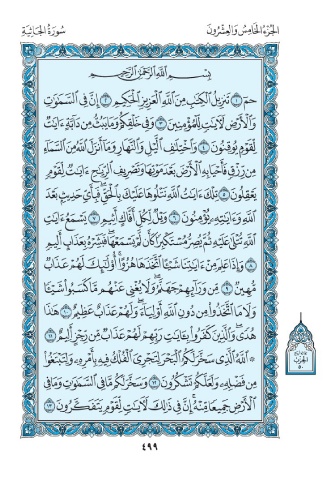 الجزء الخامس والعشرون
سورة الجاثية
بِسْمِ اللَّهِ الرَّحْمَٰنِ الرَّحِيمِ
حمٓ ١ تَنزِيلُ الْكِتَٰبِ مِنَ اللَّهِ الْعَزِيزِ الْحَكِيمِ ٢ إِنَّ فِي السَّمَٰوَٰتِ
وَالْأَرْضِ لَءَايَٰتٍ لِّلْمُؤْمِنِينَ ٣ وَفِي خَلْقِكُمْ وَمَا يَبُثُّ مِن دَابَّةٍ ءَايَٰتٌ
لِّقَوْمٍ يُوقِنُونَ ٤ وَاخْتِلَٰفِ الَّيْلِ وَالنَّهَارِ وَمَا أَنزَلَ اللَّهُ مِنَ السَّمَاءِ
مِن رِّزْقٍ فَأَحْيَا بِهِ الْأَرْضَ بَعْدَ مَوْتِهَا وَتَصْرِيفِ الرِّيَٰحِ ءَايَٰتٌ لِّقَوْمٍ
يَعْقِلُونَ ٥ تِلْكَ ءَايَٰتُ اللَّهِ نَتْلُوهَا عَلَيْكَ بِالْحَقِّ فَبِأَيِّ حَدِيثٍ بَعْدَ
اللَّهِ وَءَايَٰتِهِ يُؤْمِنُونَ ٦ وَيْلٌ لِّكُلِّ أَفَّاكٍ أَثِيمٍ ٧ يَسْمَعُ ءَايَٰتِ
اللَّهِ تُتْلَىٰ عَلَيْهِ ثُمَّ يُصِرُّ مُسْتَكْبِرًا كَأَن لَّمْ يَسْمَعْهَا فَبَشِّرْهُ بِعَذَابٍ أَلِيمٍ
٨ وَإِذَا عَلِمَ مِنْ ءَايَٰتِنَا شَيْـًٔا اتَّخَذَهَا هُزُوًا أُو۟لَٰئِكَ لَهُمْ عَذَابٌ
مُّهِينٌ ٩ مِّن وَرَائِهِمْ جَهَنَّمُ وَلَا يُغْنِي عَنْهُم مَّا كَسَبُوا شَيْـًٔا
وَلَا مَا اتَّخَذُوا مِن دُونِ اللَّهِ أَوْلِيَاءَ وَلَهُمْ عَذَابٌ عَظِيمٌ ١٠ هَٰذَا
هُدًى وَالَّذِينَ كَفَرُوا بِـَٔايَٰتِ رَبِّهِمْ لَهُمْ عَذَابٌ مِّن رِّجْزٍ أَلِيمٌ ١١
۞ اللَّهُ الَّذِي سَخَّرَ لَكُمُ الْبَحْرَ لِتَجْرِيَ الْفُلْكُ فِيهِ بِأَمْرِهِ وَلِتَبْتَغُوا
مِن فَضْلِهِ وَلَعَلَّكُمْ تَشْكُرُونَ ١٢ وَسَخَّرَ لَكُم مَّا فِي السَّمَٰوَٰتِ وَمَا فِي
الْأَرْضِ جَمِيعًا مِّنْهُ إِنَّ فِي ذَٰلِكَ لَءَايَٰتٍ لِّقَوْمٍ يَتَفَكَّرُونَ ١٣
الحزب
٥٠
٤٩٩